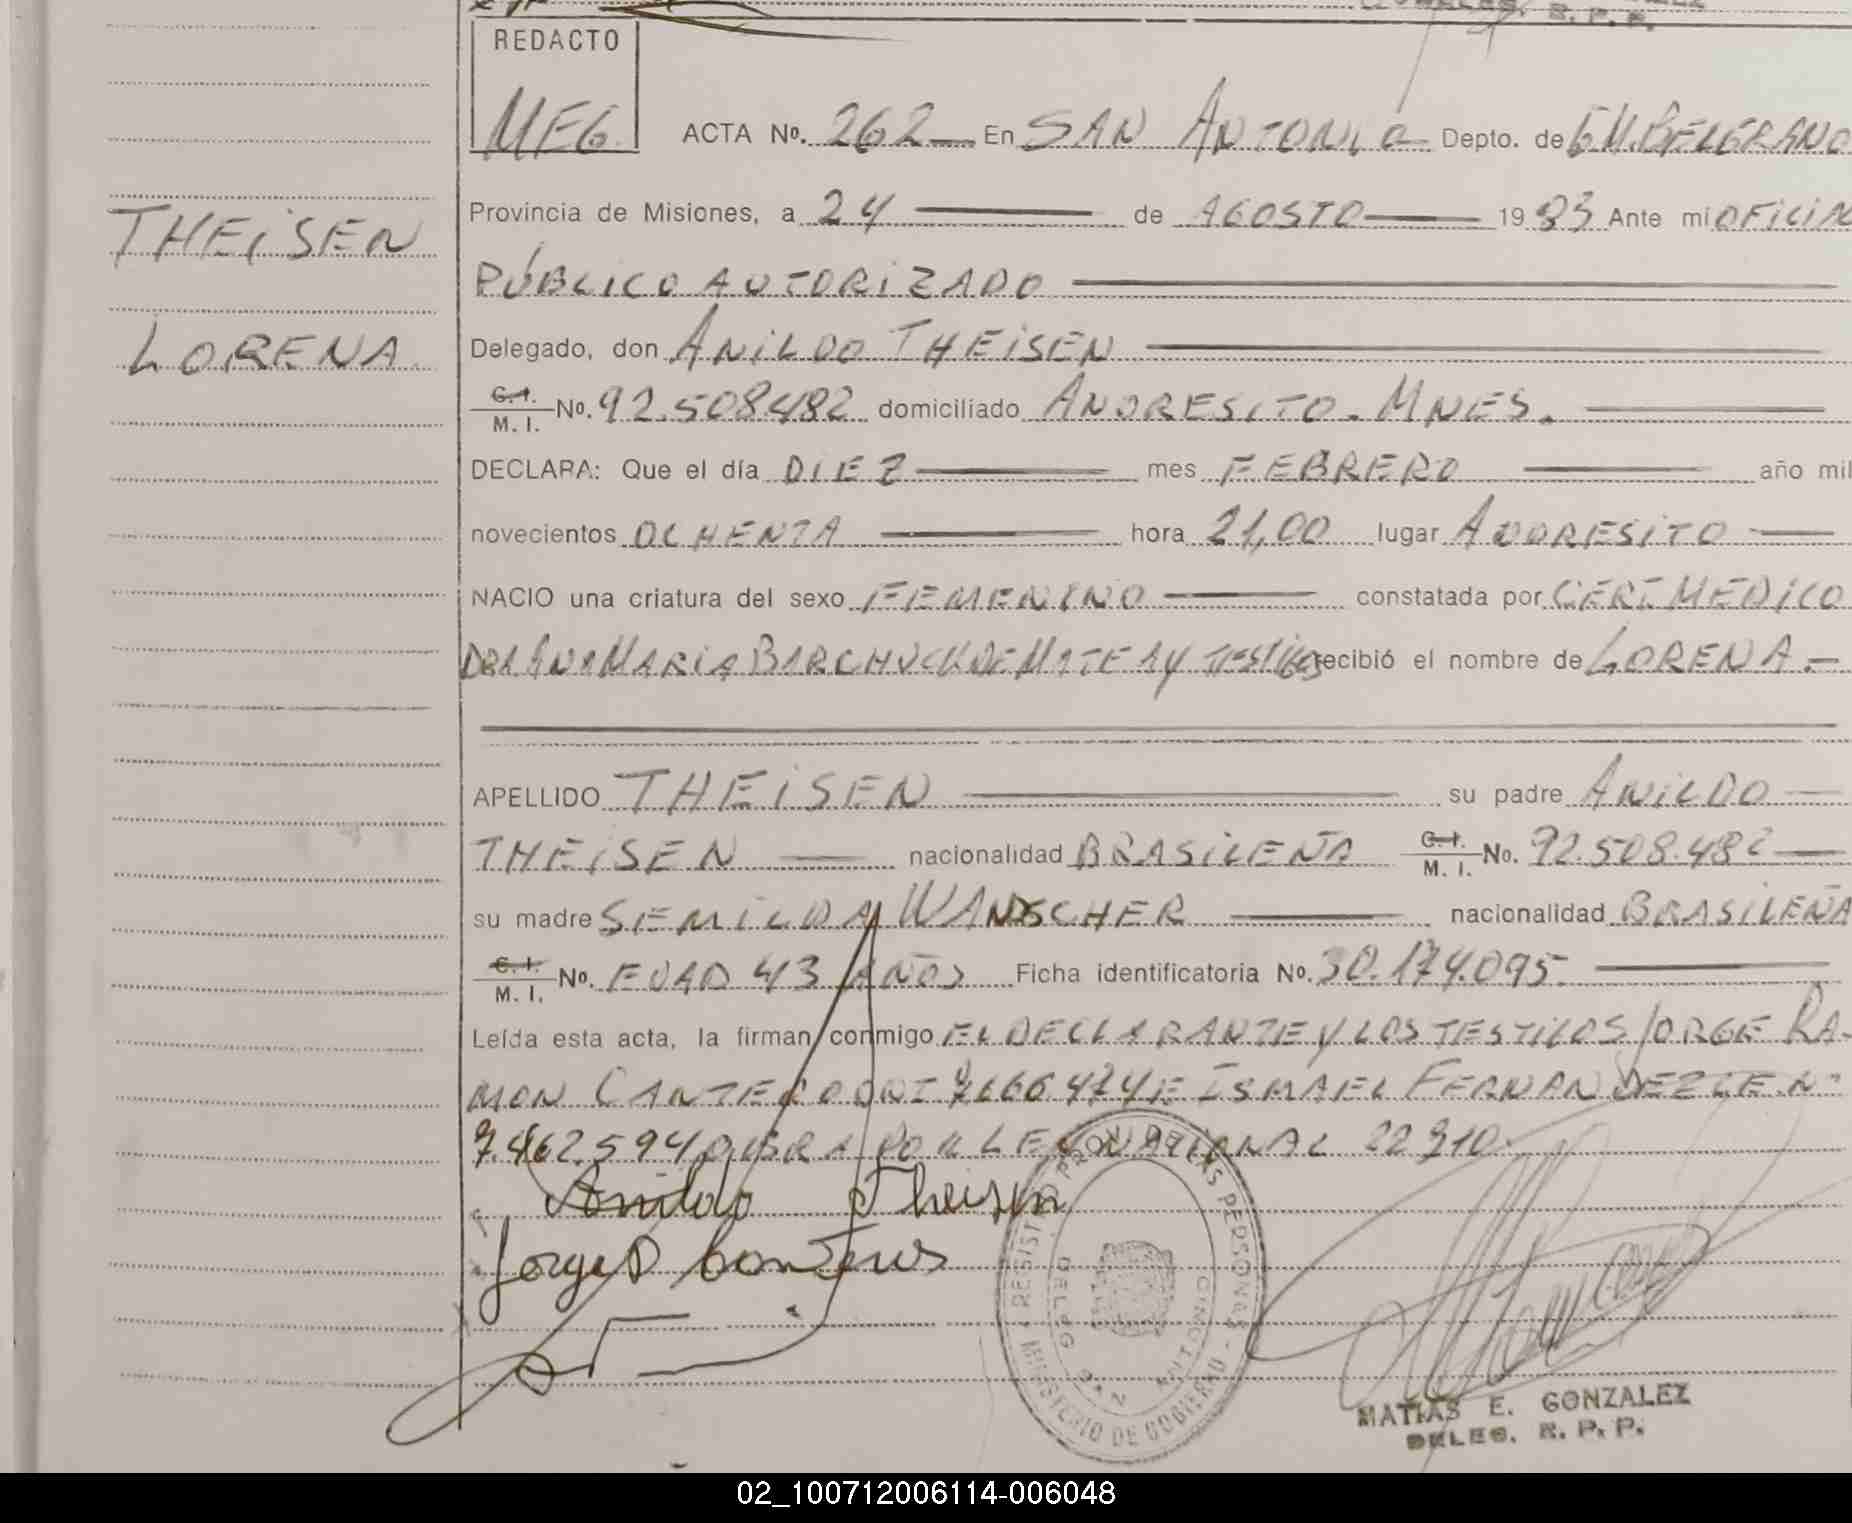 REDACTO
MEG.
ACTA Nº. 262 En SAN ANTONIO Depto. de G M. BELGRANO
Provincia de Misiones, a 24 de AGOSTO 1983 Ante mi OFICIAL
THEISEN
PÚBLICO AUTORIZADO
LORENA
Delegado, don ANILDO THEISEN
C. I. M. I. No. 92.508.482 domiciliado ANDRESITO. MNES.
DECLARA: Que el día DIEZ mes FEBRERO año mil
novecientos OCHENTA hora 21,00 lugar ANDRESITO
NACIO una criatura del sexo FEMENINO constatada por CERT MEDICO
DRA ANA MARIA BARCHUCK DE MATE Y TESTIGOS recibió el nombre de LORENA.-
APELLIDO THEISEN su padre ANILDO
THEISEN nacionalidad BRASILEÑA C. I. M. I. No. 92.508.482
su madre SEMILDA WANSCHER nacionalidad BRASILEÑA
C. I. M. I. No. EDAD 43 AÑOS Ficha identificatoria No. 30.174.095
Leída esta acta, la firman conmigo EL DECLARANTE Y LOS TESTIGOS JORGE RA-
MON CANTERO DNI 7666.474 E ISMAEL FERNANDEZ L E. N°
7.462.594 OBRA POR LEY NACIONAL 22910
Anildo Theisen
Jorge R Canteros
REGISTRO PROV. DE LAS PERSONAS
MINISTERIO DE GOBIERNO
DELEG SAN ANTONIO
MATIAS E. GONZALEZ
DELEG. R. P. P.
02_100712006114-006048